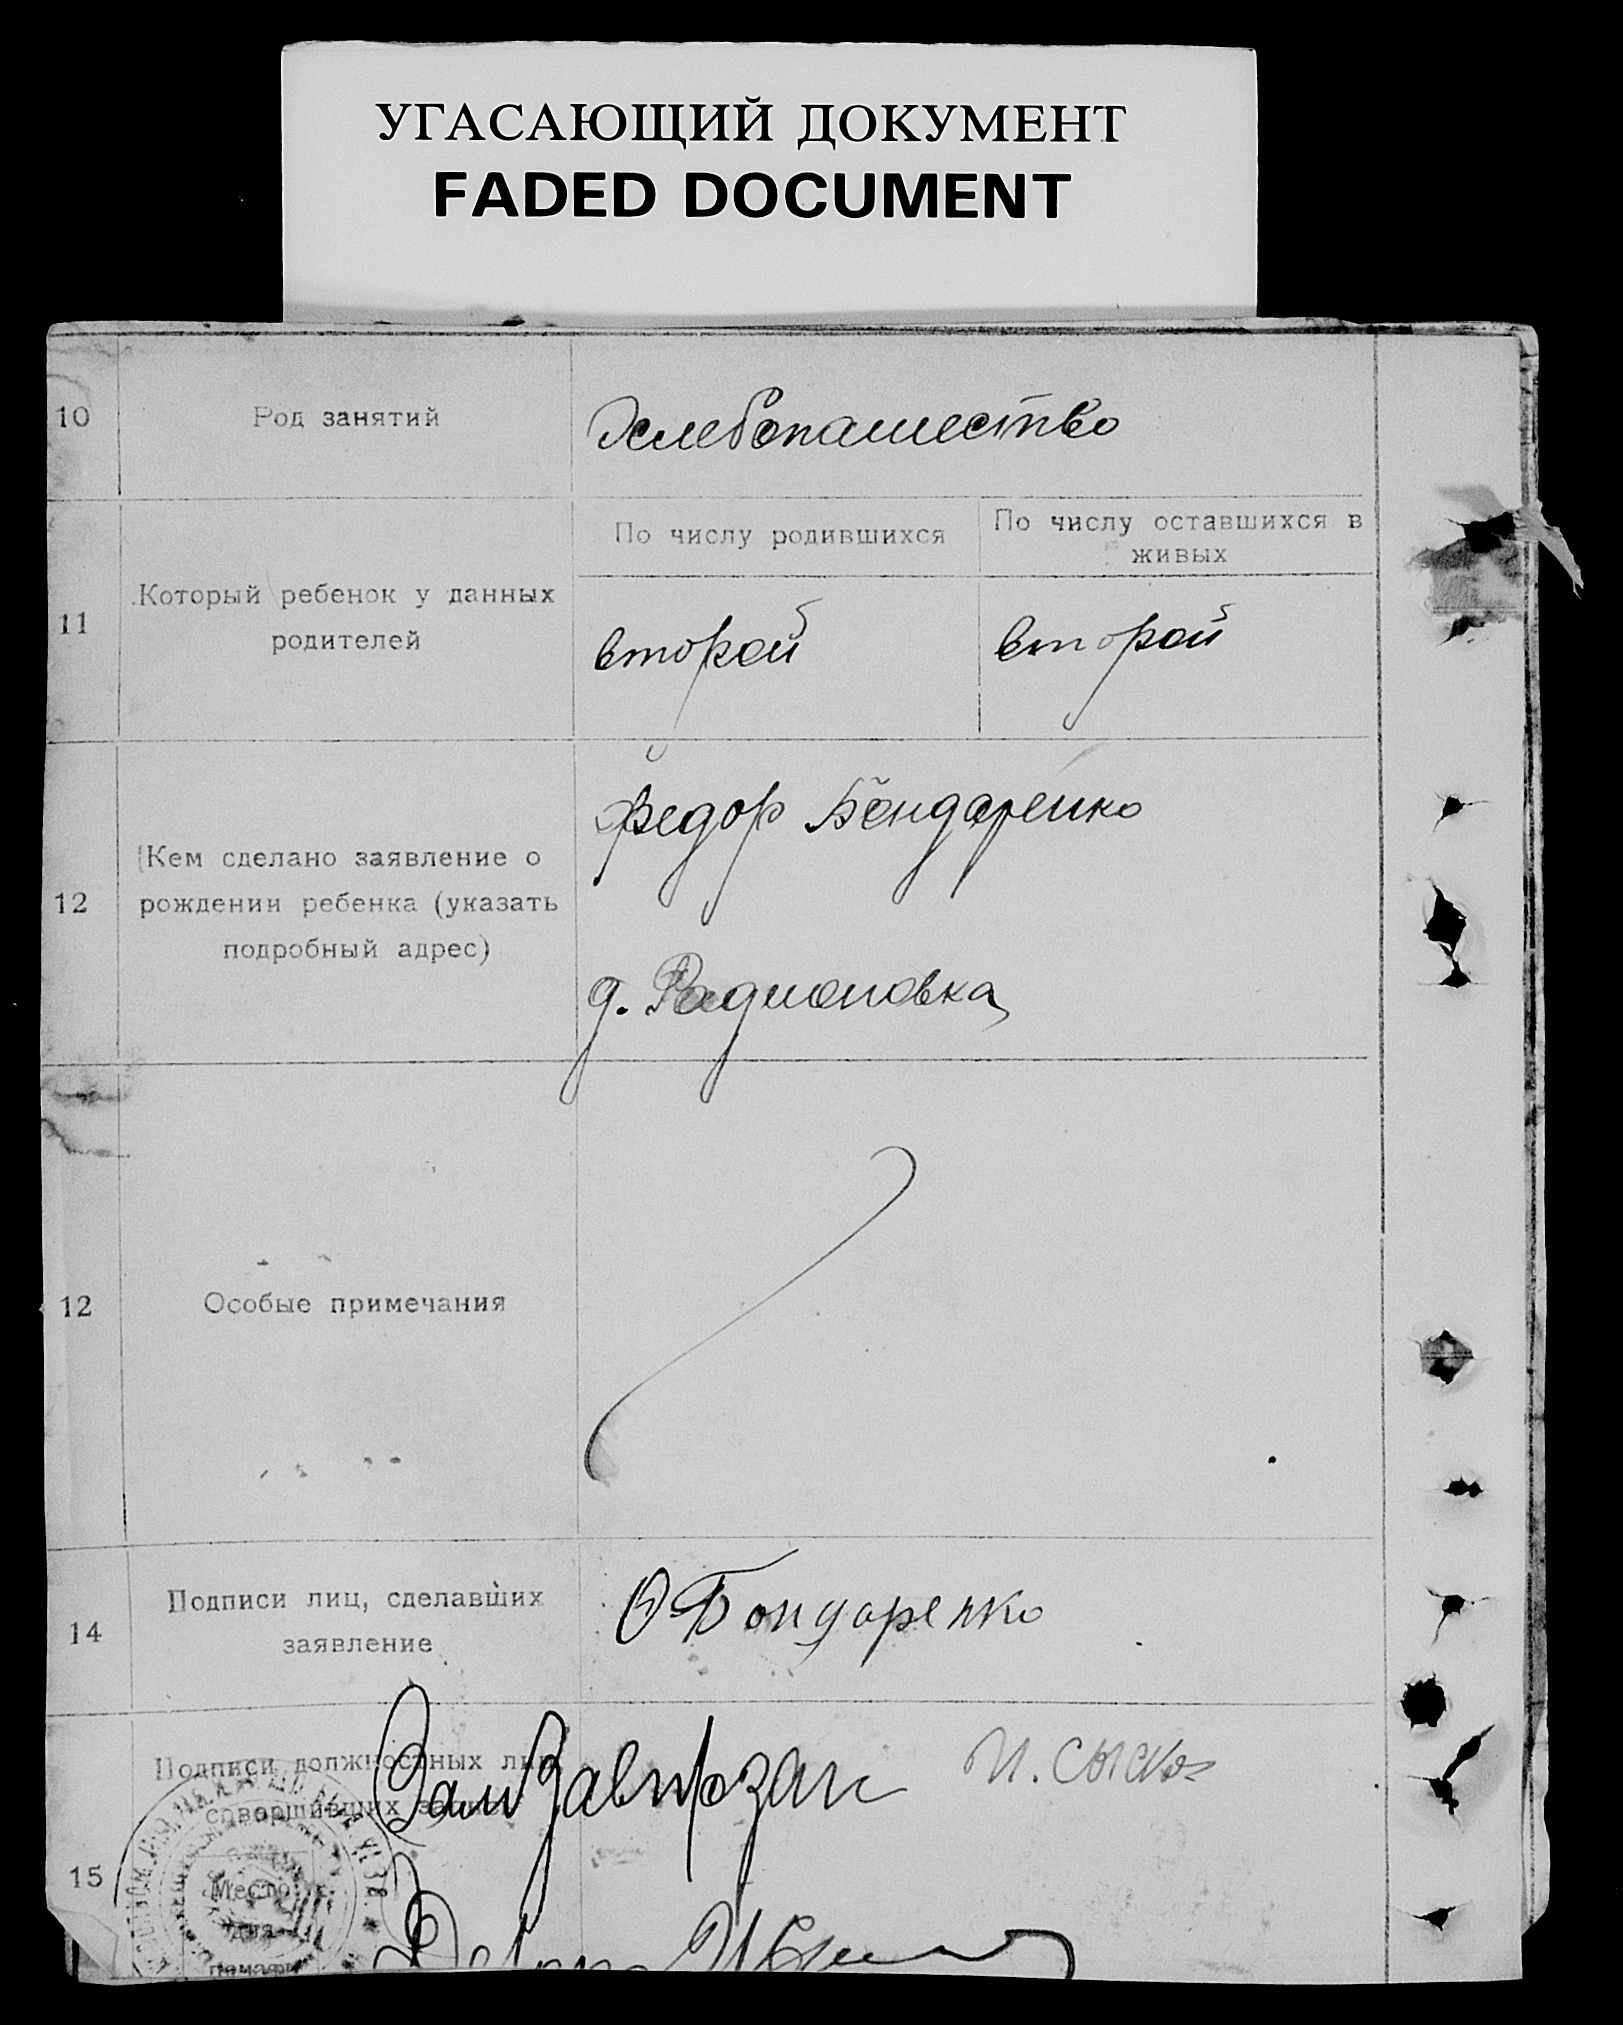 УГАСАЮЩИЙ ДОКУМЕНТ
FADED DOCUMENT
10 Род занятий Хлебопашество
По числу родившихся
По числу оставшихся в живых
11 Который ребенок у данных
родителей
второй второй
Федор Бондаренко
12 Кем сделано заявление о
рождении ребенка (указать
подробный адрес)
д. Радионовка
12 Особые примечания
14 Подписи лиц, сделавших
заявление
Ф Бондаренко
Подписи должностных лиц
совершивших
Зав
И.
15 Место
для